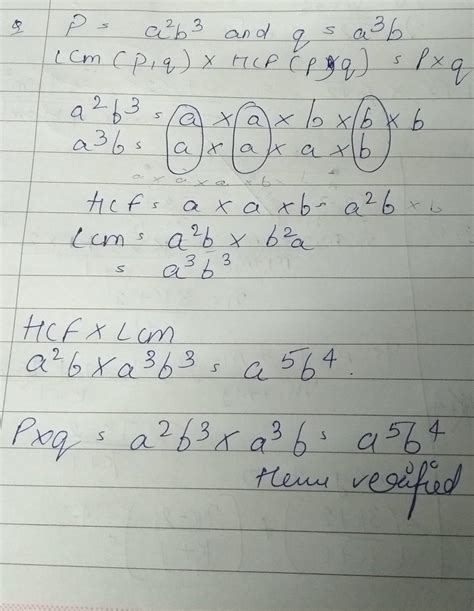 Q P = a²b³ and q = a³b
LCM (P,q) × HCF (P×q) = P×q
a²b³ = a × a × b × b × b
a³b = a × a × a × b
HCF = a × a × b = a²b
LCM = a²b × b²a
= a³b³
HCF × LCM
a²b × a³b³ = a⁵b⁴.
P×q = a²b³ × a³b = a⁵b⁴
Hence verified